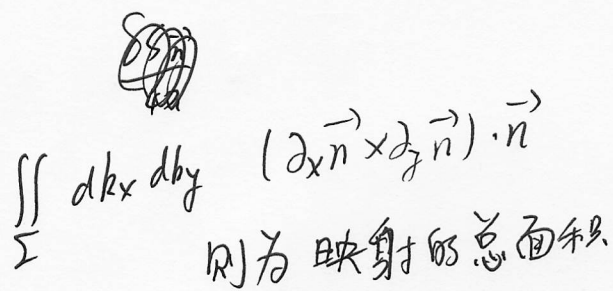 ∬_Σ dkx dky (∂_x n⃗ × ∂_y n⃗) · n⃗
则为 映射的总面积